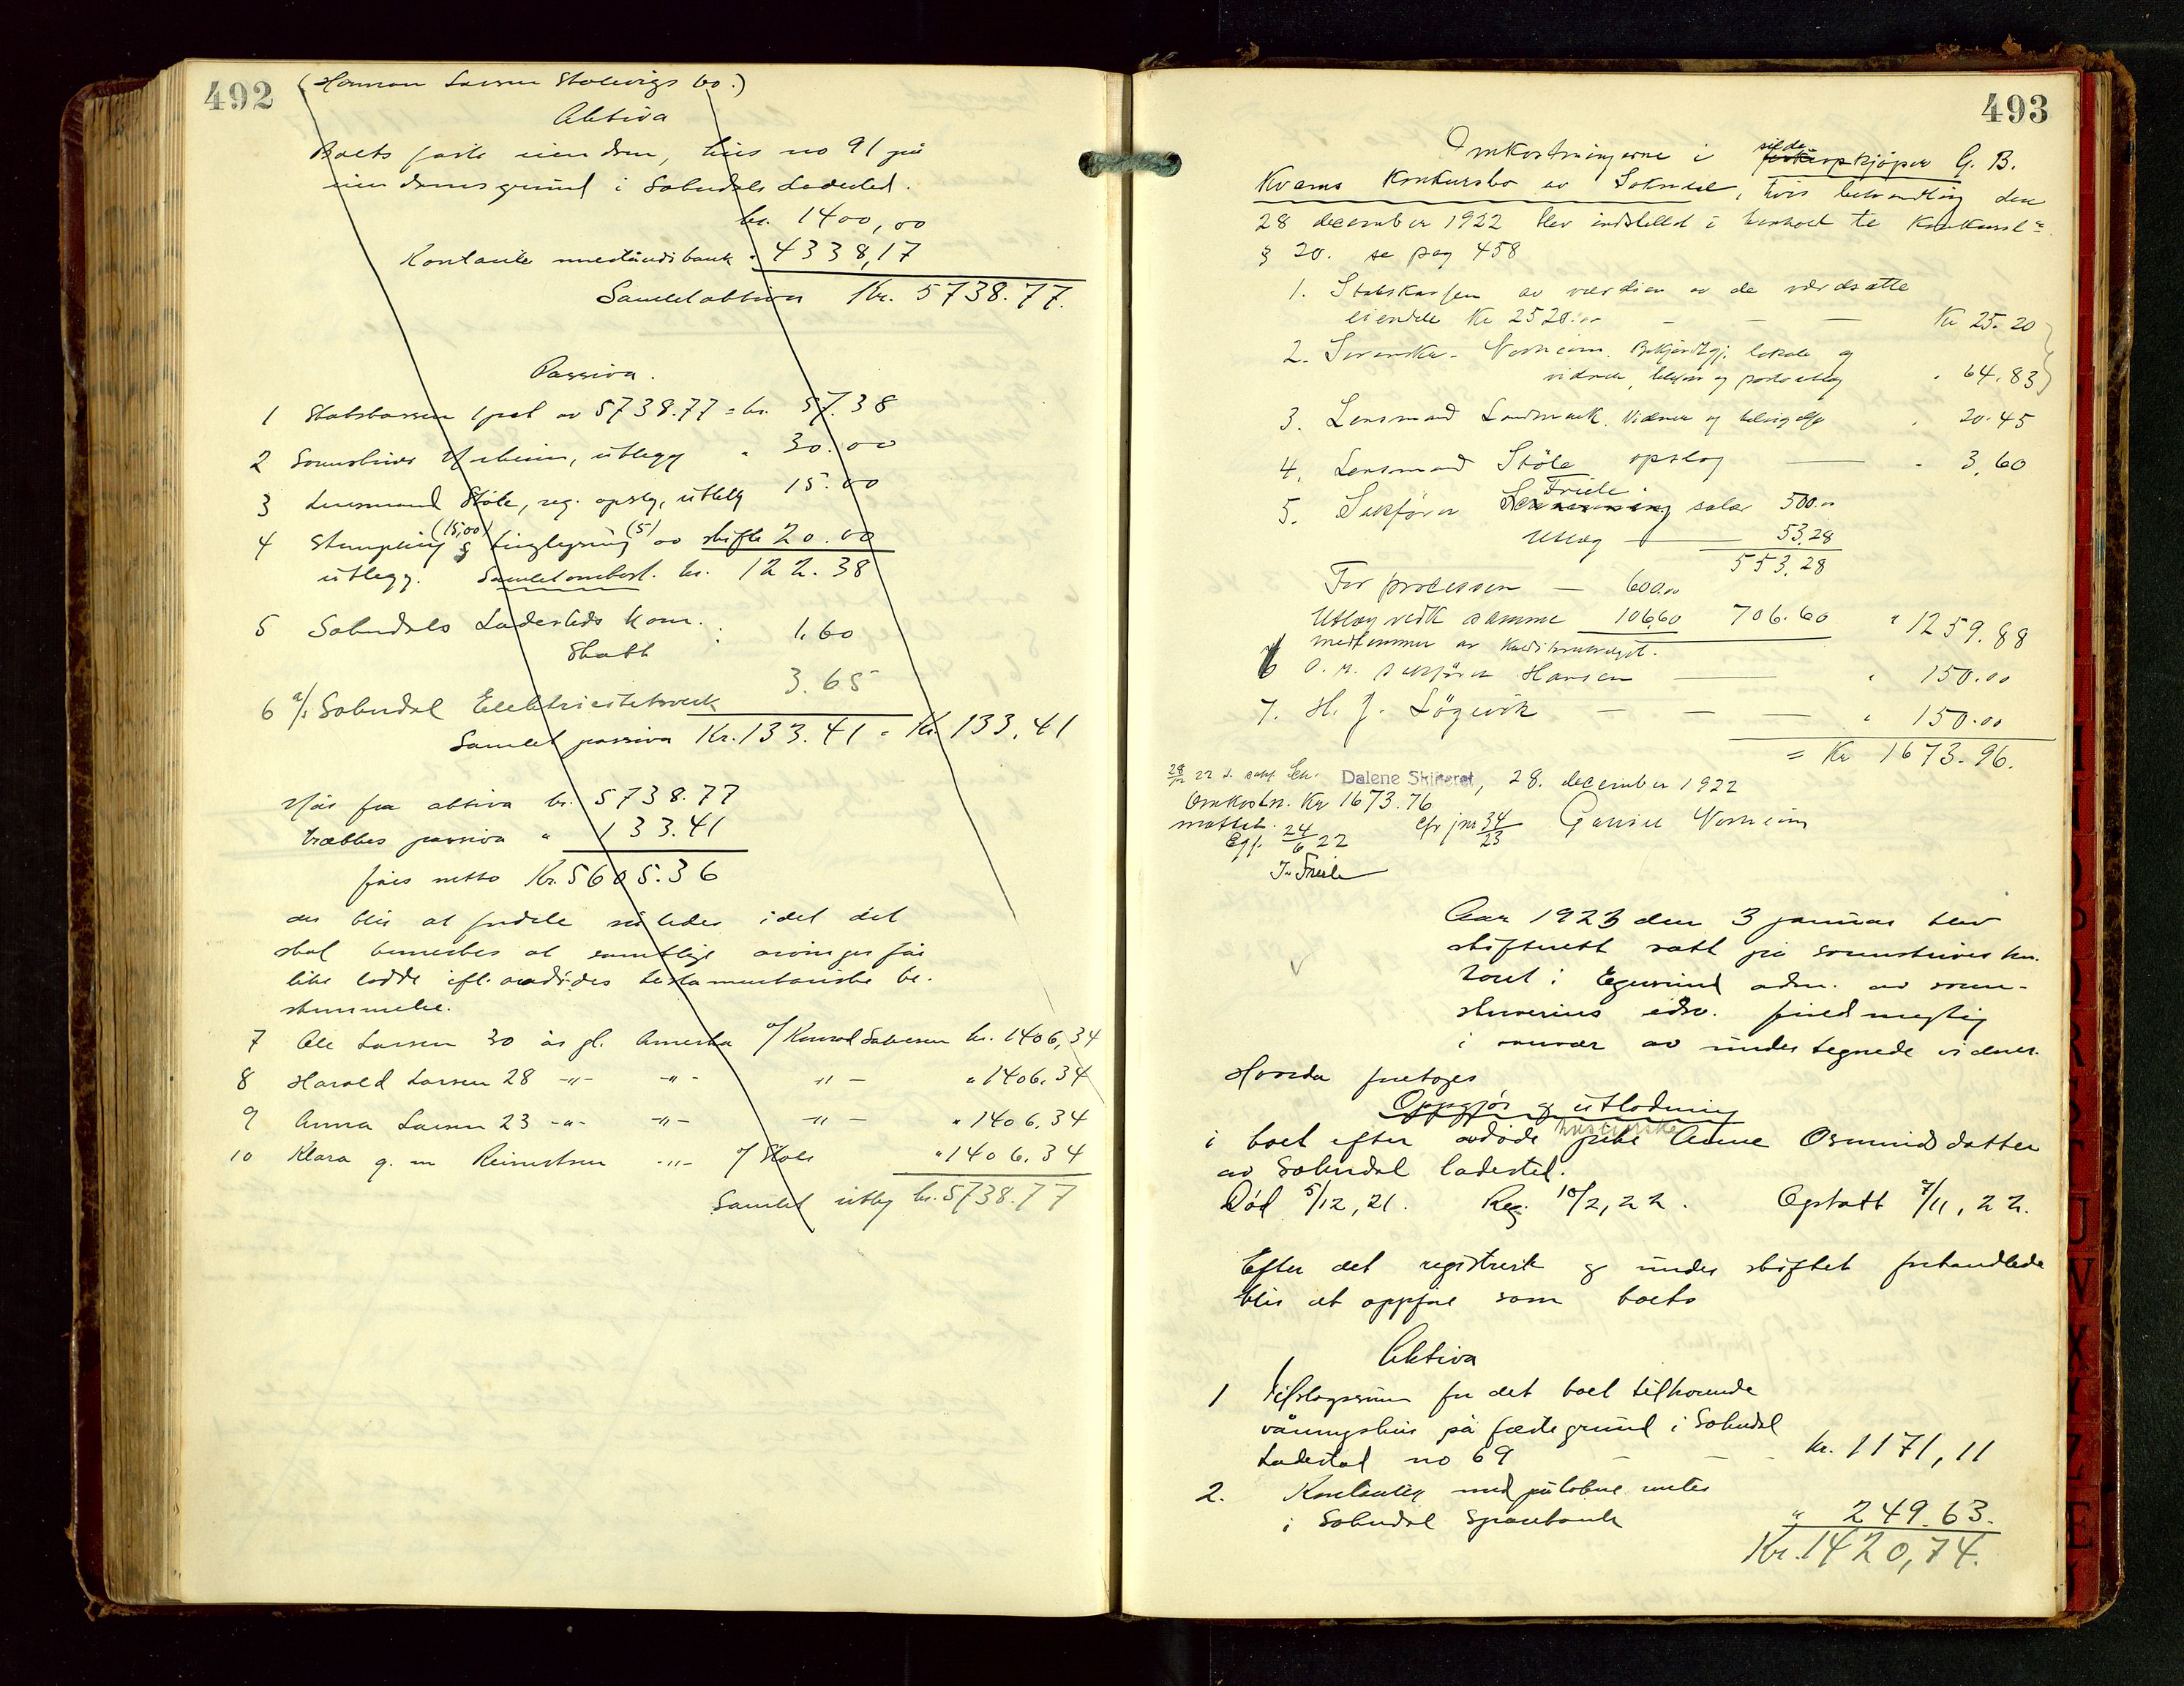 492
(Herman Larsen Stolevigs bo.)
Aktiva
Boets faste eiendom, hus no 91 på
eiendomsgrund i Sokndals Ladested.
kr. 1400,00
Kontante innestående i bank " 4338,17
Samlet aktiva Kr. 5738.77.
Passiva.
1 Statskassen 1 pct av 5738.77 = kr. 57.38
2 Sorenskriver Norheim, utlegg " 30.00
3 Lensmand Støle, reg. opslg, utlegg 15.00
4 Stempling (15,00) & tinglysning (5) av skifte 20.00
utlegg. Samlet omkost. kr. 122.38
5 Sokndals Ladesteds kom.
Skatt : 1.60
6 a/s Sokndal Elektricitetsverk 3.65
Samlet passiva Kr. 133.41 = Kr. 133.41
Når fra aktiva kr. 5738.77
trækkes passiva " 133.41
fåes netto Kr. 5605.36
der blir at fordele således idet det
skal bemerkes at samtlige arvinger får
like lodde ifl. avdødes testamentariske be-
stemmelse.
7 Ole Larsen 30 år gl. Amerika kr. 1406,34
8 Harald Larsen 28 -"- -"- -"- " 1406.34
9 Anna Larsen 23 -"- -"- -"- " 1406.34
10 Klara g. m. Reinertsen -"- " 1406.34
Samlet utlg kr. 5738.77
493
Omkostningerne i silde-
opkjøper G. B.
Kvams Konkursbo av Sokndal, hvis behandling den
28 december 1922 blev indstillet i henhold til Konkursl.
§ 20. se pag 458
1. Statskassen av værdien av de værdsatte
eiendele Kr 2520.00 — — — Kr 25.20
2. Sorenskr. Norheim. Bekjendtgj. lokale og
vidner, telefon og portoutlæg " 64.83
3. Lensmand Landmark. Vidner og " 20.45
4. Lensmand Støle opslag — " 3.60
5. Sakfører Friele salær 500.00
Utlæg — 53.28
553.28
For processen — 600.00
Utlæg vedk samme 106.60 706.60 " 1259.88
medlemmer av kreditorutvalget.
6 O. r. sakfører Hansen — " 150.00
7. H. J. Løgevik — — — " 150.00
= Kr 1673.96.
Dalene Skifteret, 28. december 1922
Omkostn. Kr 1673.76
mottat. cfr jnr 34/23 Gabriel Norheim
Egs. 24/6 22
J. Friele
Aar 1923 den 3 januar blev
skifterett satt på sorenskriverkon-
toret i Egersund adm. av soren-
skriverens edsv. fuldmegtig
i nærvær av undertegnede vidner.
Hvorda foretoges
Oppgjør og utlodning
husstrske
i boet efter avdøde pike Anne Osmundsdatter
av Sokndal ladested.
Død 5/12, 21. Reg. 10/2, 22. Opstatt 7/11, 22.
Efter det registrerte og under skiftet forhandlede
blir at oppføre som boets
Aktiva
1 Tilslagssum for det boet tilhørende
våningshus på festegrund i Sokndal
Ladested no 69 — — kr. 1171,11
2. Kontanter med påløpne renter
i Sokndal Sparebank " 249.63.
Kr. 1420,74.